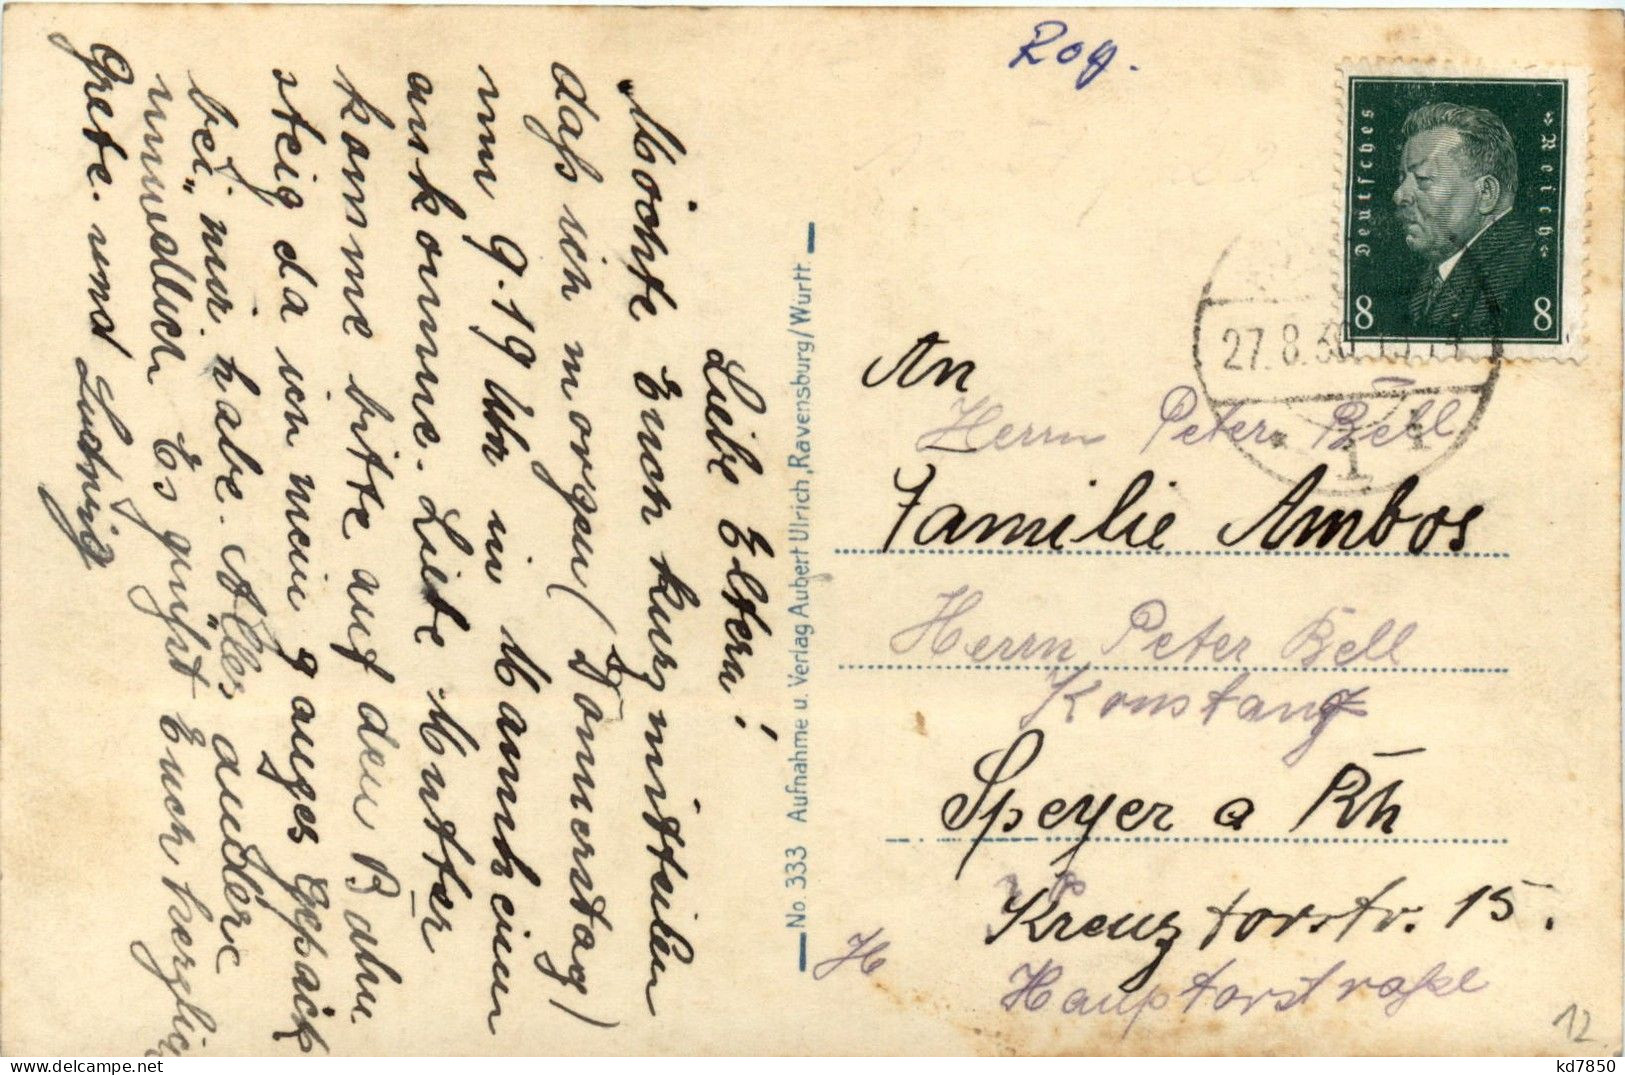 Liebe Eltern!
Möchte Euch kurz mitteilen
daß ich morgen (Donnerstag)
um 9.19 Uhr in Mannheim
ankomme. Liebe Mutter
komme bitte auf den Bahn
steig da ich mein ganzes Gepäck
bei mir habe. Alles andere
mündlich Es grüßt Euch herzlich
Grete. und Ludwig
No. 333 Aufnahme u. Verlag Aubert Ulrich, Ravensburg/Württ.
Deutsches Reich
8 8
27.8.30
An
Herrn Peter Bell
Familie Ambos
Herrn Peter Bell
Konstanz
Speyer a Rh
Kreuztorstr. 15.
H
Hauptorstraße
12
kd7850